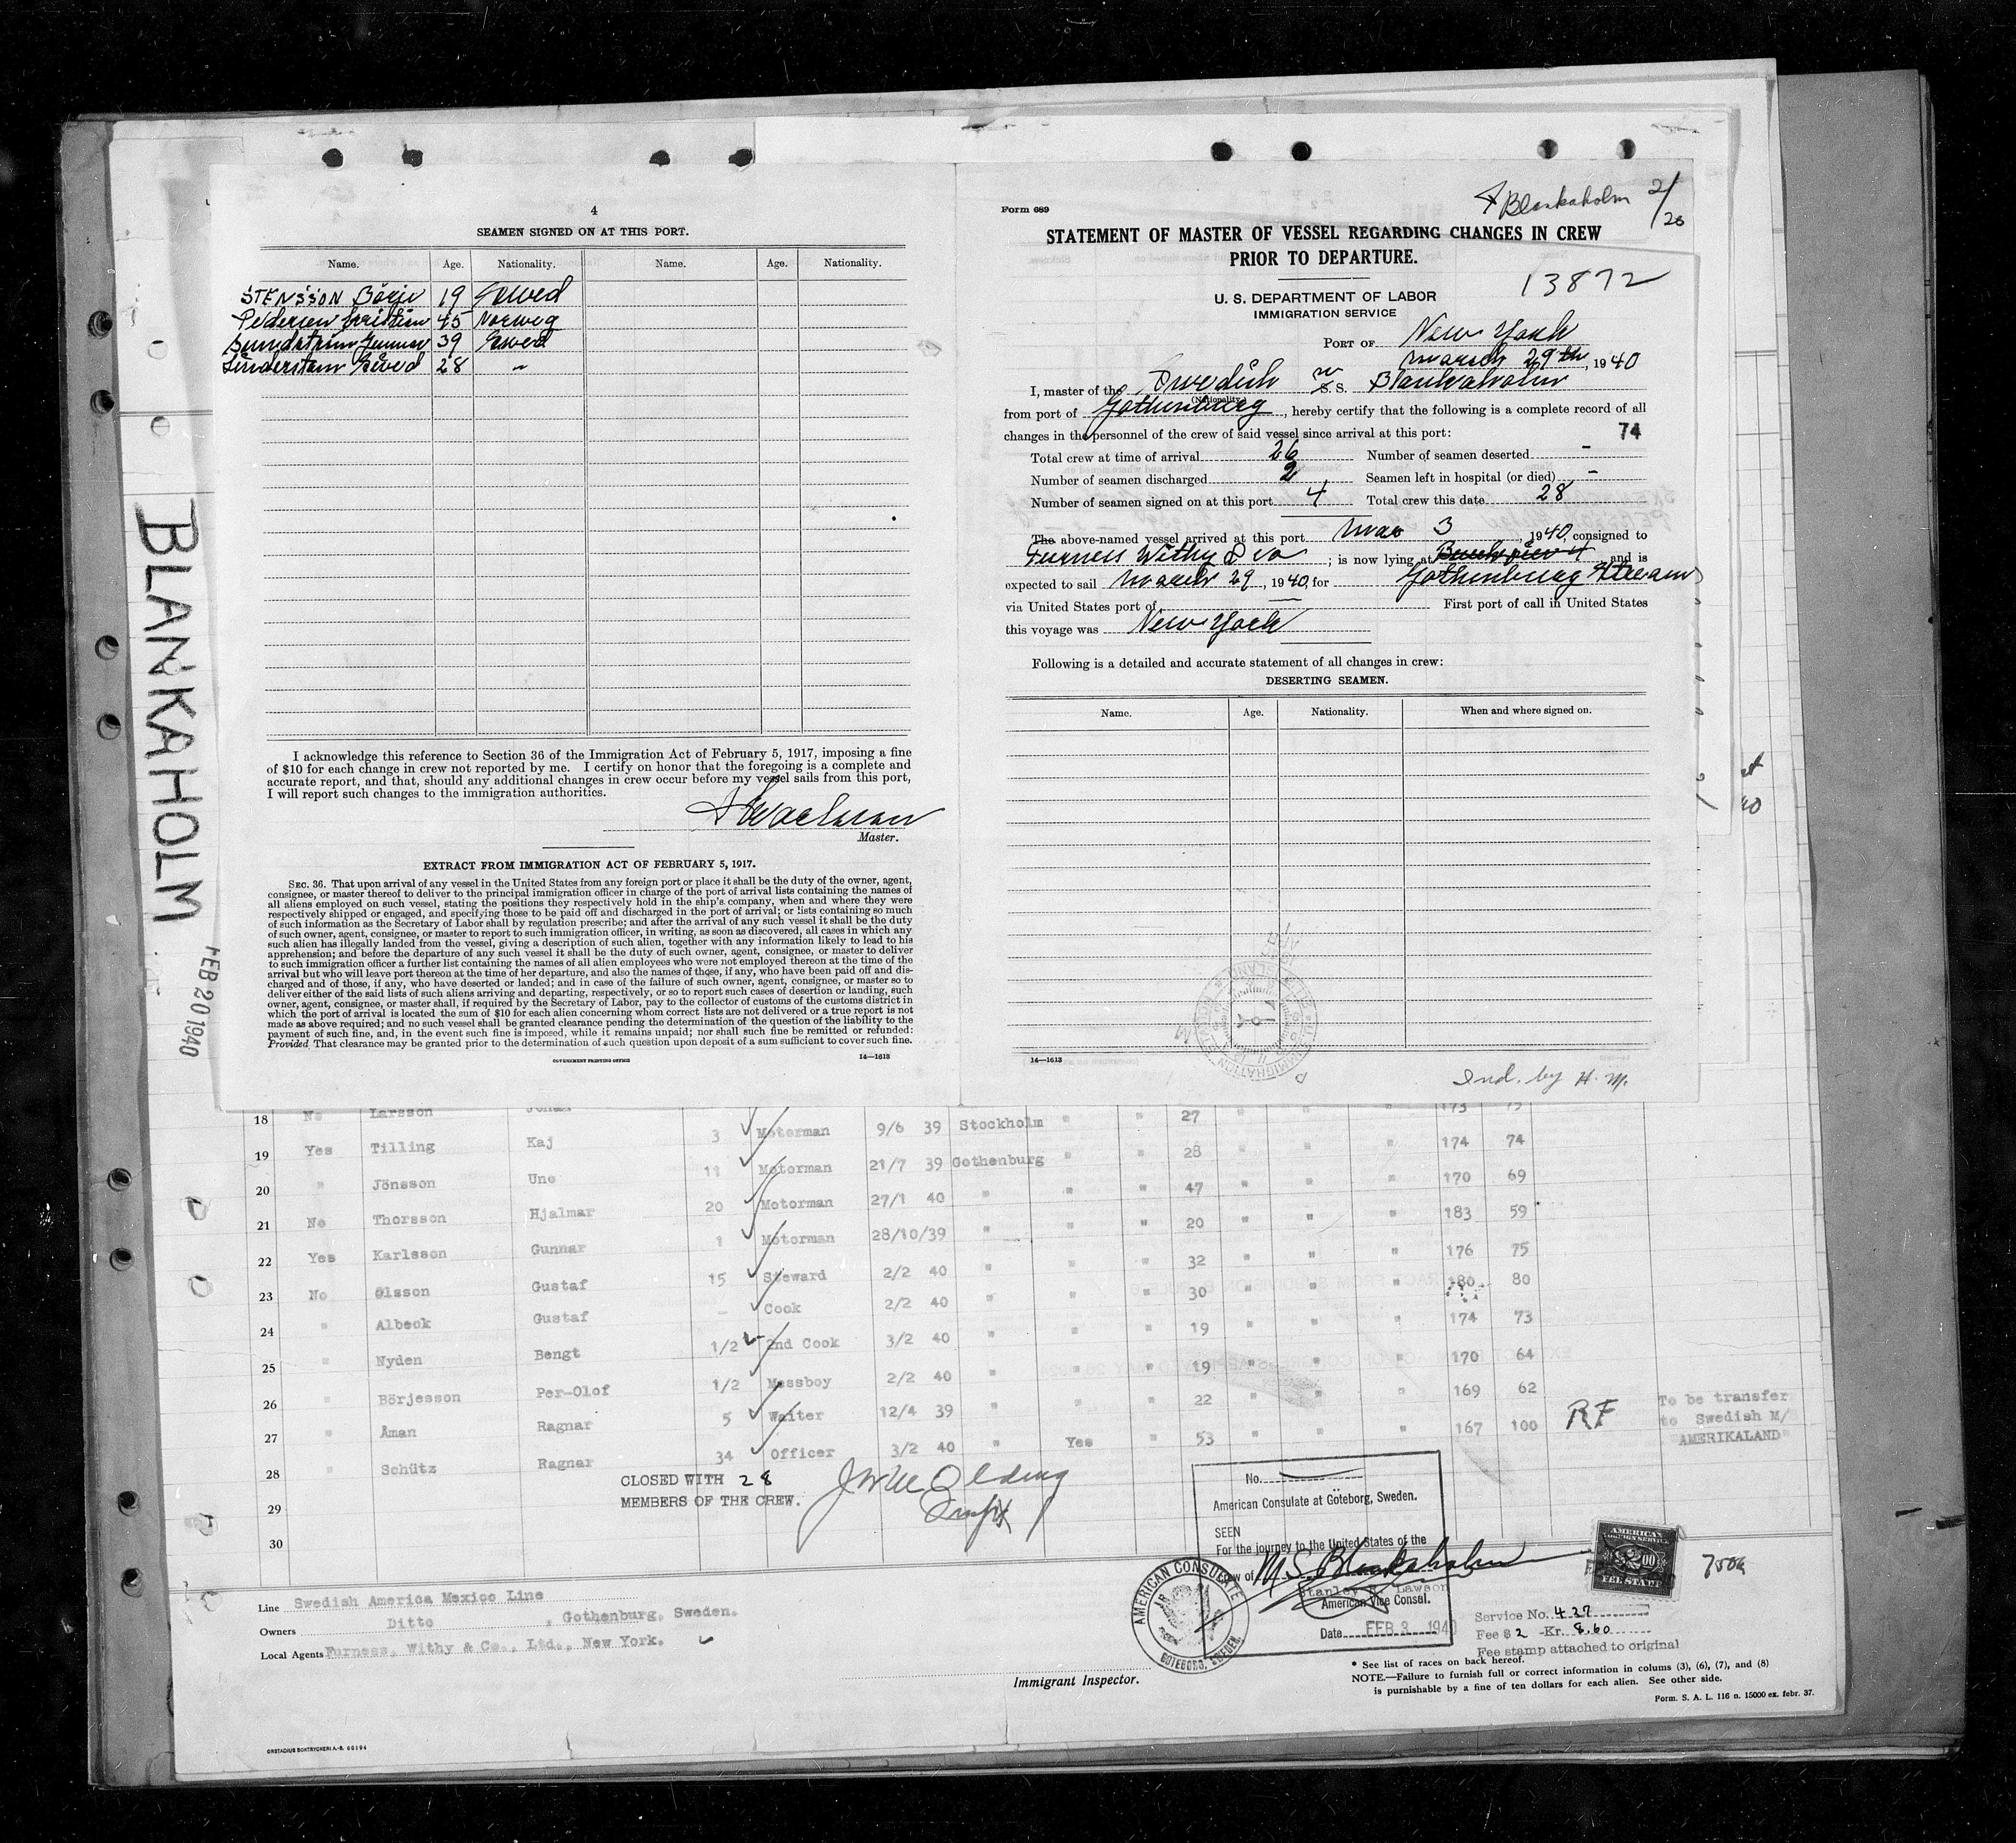 BLANKAHOLM
FEB 20 1940
4
SEAMEN SIGNED ON AT THIS PORT.
Name. Age. Nationality. Name. Age. Nationality.
STENSSON Börje 19 Swed
Pedersen 45 Norweg
Gunnar 39 Swed
28 "
I acknowledge this reference to Section 36 of the Immigration Act of February 5, 1917, imposing a fine
of $10 for each change in crew not reported by me. I certify on honor that the foregoing is a complete and
accurate report, and that, should any additional changes in crew occur before my vessel sails from this port,
I will report such changes to the immigration authorities.
Master.
EXTRACT FROM IMMIGRATION ACT OF FEBRUARY 5, 1917.
SEC. 36. That upon arrival of any vessel in the United States from any foreign port or place it shall be the duty of the owner, agent,
consignee, or master thereof to deliver to the principal immigration officer in charge of the port of arrival lists containing the names of
all aliens employed on such vessel, stating the positions they respectively hold in the ship's company, when and where they were
respectively shipped or engaged, and specifying those to be paid off and discharged in the port of arrival; or lists containing so much
of such information as the Secretary of Labor shall by regulation prescribe; and after the arrival of any such vessel it shall be the duty
of such owner, agent, consignee, or master to report to such immigration officer, in writing, as soon as discovered, all cases in which any
such alien has illegally landed from the vessel, giving a description of such alien, together with any information likely to lead to his
apprehension; and before the departure of any such vessel it shall be the duty of such owner, agent, consignee, or master to deliver
to such immigration officer a further list containing the names of all alien employees who were not employed thereon at the time of the
arrival but who will leave port thereon at the time of her departure, and also the names of those, if any, who have been paid off and dis-
charged and of those, if any, who have deserted or landed; and in case of the failure of such owner, agent, consignee, or master so to
deliver either of the said lists of such aliens arriving and departing, respectively, or so to report such cases of desertion or landing, such
owner, agent, consignee, or master shall, if required by the Secretary of Labor, pay to the collector of customs of the customs district in
which the port of arrival is located the sum of $10 for each alien concerning whom correct lists are not delivered or a true report is not
made as above required; and no such vessel shall be granted clearance pending the determination of the question of the liability to the
payment of such fine, and, in the event such fine is imposed, while it remains unpaid; nor shall such fine be remitted or refunded:
Provided That clearance may be granted prior to the determination of such question upon deposit of a sum sufficient to cover such fine.
GOVERNMENT PRINTING OFFICE 14—1613
Blankaholm 2/20
Form 689
STATEMENT OF MASTER OF VESSEL REGARDING CHANGES IN CREW
PRIOR TO DEPARTURE.
13872
U. S. DEPARTMENT OF LABOR
IMMIGRATION SERVICE
PORT OF New York
March 29th, 1940
I, master of the Swedish M S. S. Blankaholm
(Nationality)
from port of Gothenburg, hereby certify that the following is a complete record of all
changes in the personnel of the crew of said vessel since arrival at this port: 74
Total crew at time of arrival 26 Number of seamen deserted -
Number of seamen discharged 2 Seamen left in hospital (or died) -
Number of seamen signed on at this port 4 Total crew this date 28
The above-named vessel arrived at this port Mar 3, 1940, consigned to
Furness Withy & Co; is now lying at and is
expected to sail March 29, 1940, for Gothenburg
via United States port of First port of call in United States
this voyage was New York
Following is a detailed and accurate statement of all changes in crew:
DESERTING SEAMEN.
Name. Age. Nationality. When and where signed on.
14—1613
Ind. by H. M.
18 No Larsson Johan 3 Motorman 9/6 39 Stockholm " " 27 " " " 173 75
19 Yes Tilling Kaj 11 Motorman 21/7 39 Gothenburg " " 28 " " " 174 74
20 " Jönsson Une 20 Motorman 27/1 40 " " " 47 " " " 170 69
21 No Thorsson Hjalmar 1 Motorman 28/10/39 " " " 20 " " " 183 59
22 Yes Karlsson Gunnar 15 Steward 2/2 40 " " " 32 " " " 176 75
23 No Olsson Gustaf - Cook 2/2 40 " " " 30 " " " 180 80
24 " Albeck Gustaf 1/2 2nd Cook 3/2 40 " " " 19 " " " 174 73
25 " Nyden Bengt 1/2 Messboy 2/2 40 " " " 19 " " " 170 64
26 " Börjesson Per-Olof 5 Waiter 12/4 39 " " " 22 " " " 169 62
27 " Åman Ragnar 34 Officer 3/2 40 " Yes " 53 " " " 167 100 RF To be transfer
to Swedish M/S
"AMERIKALAND"
28 " Schütz Ragnar
29
30
CLOSED WITH 28
MEMBERS OF THE CREW.
No.
American Consulate at Göteborg, Sweden.
SEEN
For the journey to the United States of the
crew of M.S. Blankaholm
Stanley R. Lawson
American Vice Consul.
Date FEB 3 1940
AMERICAN CONSULATE
GOTEBORG, SWEDEN.
AMERICAN
FOREIGN SERVICE
$2.00
FEE STAMP
Service No. 427
Fee $ 2 -Kr. 8.60
Fee stamp attached to original
Line Swedish America Mexico Line
Owners Ditto, Gothenburg, Sweden.
Local Agents Furness, Withy & Co., Ltd., New York.
Immigrant Inspector.
* See list of races on back hereof.
NOTE.—Failure to furnish full or correct information in colums (3), (6), (7), and (8)
is punishable by a fine of ten dollars for each alien. See other side.
Form. S. A. L. 116 n. 15000 ex. febr. 37.
ORSTADIUS BOKTRYCKERI A.-B. 60194